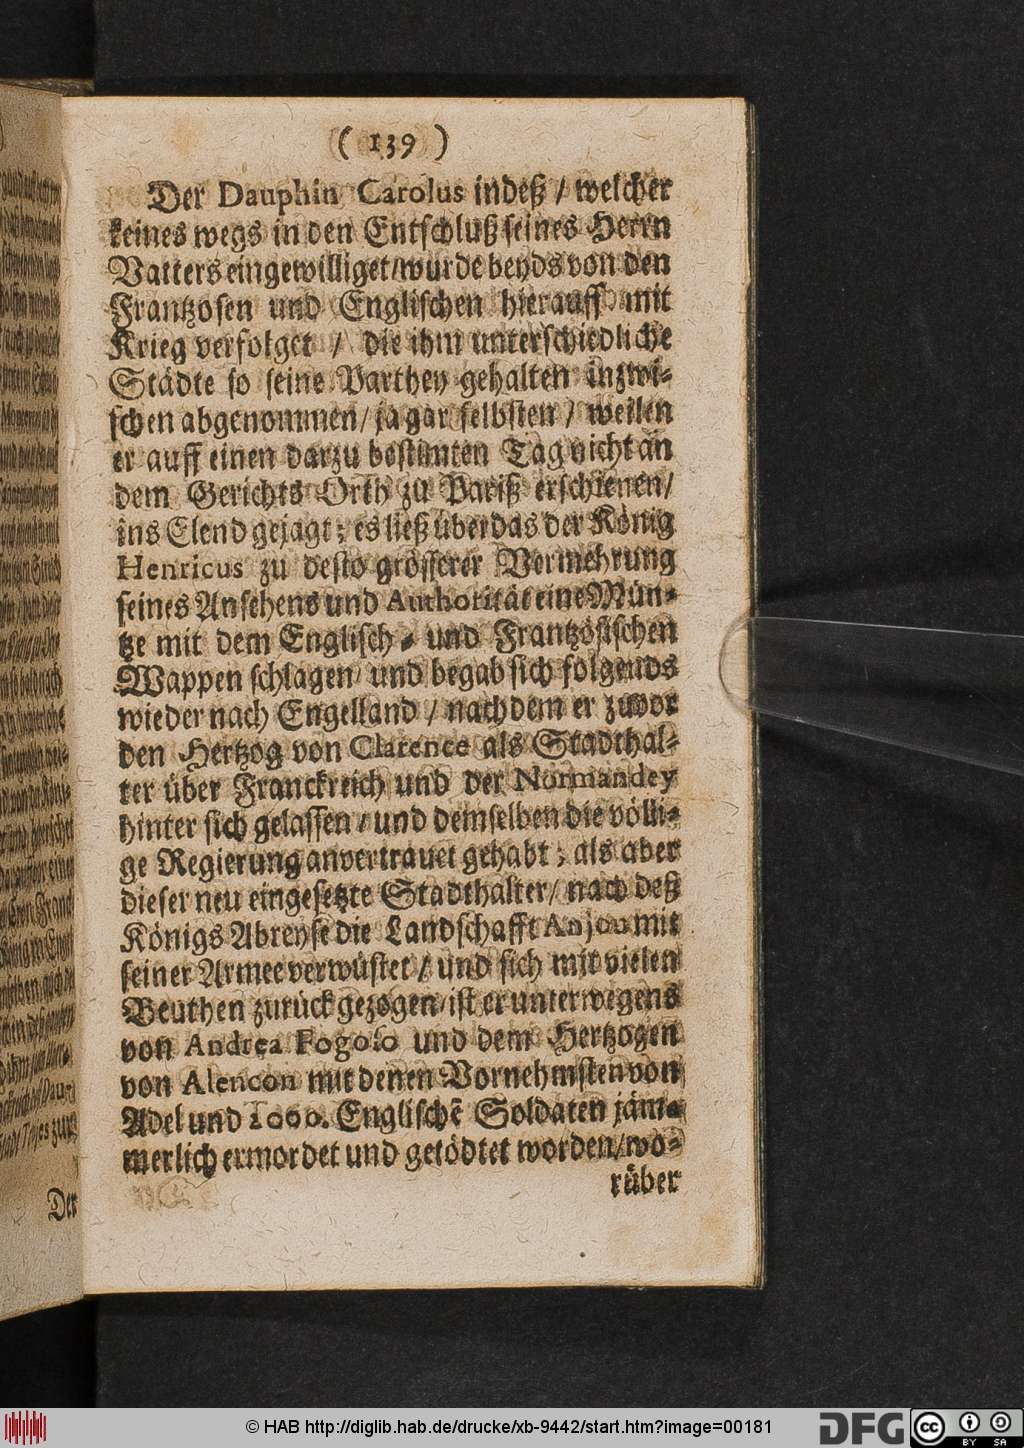 ( 139 )
Der Dauphin Carolus indeß / welcher
keines wegs in den Entschluß seines Herrn
Vatters eingewilliget / wurde beyds von den
Frantzosen und Englischen hierauff mit
Krieg verfolget / die ihm unterschiedliche
Städte so seine Parthey gehalten inzwi-
schen abgenommen / ja gar selbsten / weilen
er auff einen darzu bestimten Tag nicht an
dem Gerichts Orth zu Pariß erschienen /
ins Elend gejagt ; es ließ überdas der König
Henricus zu desto grösserer Vermehrung
seines Ansehens und Authorität eine Mün-
tze mit dem Englisch - und Frantzösischen
Wappen schlagen / und begab sich folgends
wieder nach Engelland / nachdem er zuvor
den Hertzog von Clarence als Stadthal-
ter über Franckreich und der Normandey
hinter sich gelassen / und demselben die völli-
ge Regierung anvertrauet gehabt ; als aber
dieser neu eingesetzte Stadthalter / nach deß
Königs Abreyse die Landschafft Anjou mit
seiner Armee verwüstet / und sich mit vielen
Beuthen zurück gezogen / ist er unterwegens
von Andrea Fogoso und dem Hertzogen
von Alencon mit denen Vornehmsten von
Adel und 1000. Englischē Soldaten jäm-
merlich ermordet und getödtet worden / wo-
rüber
Der
© HAB http://diglib.hab.de/drucke/xb-9442/start.htm?image=00181
DFG
cc BY SA